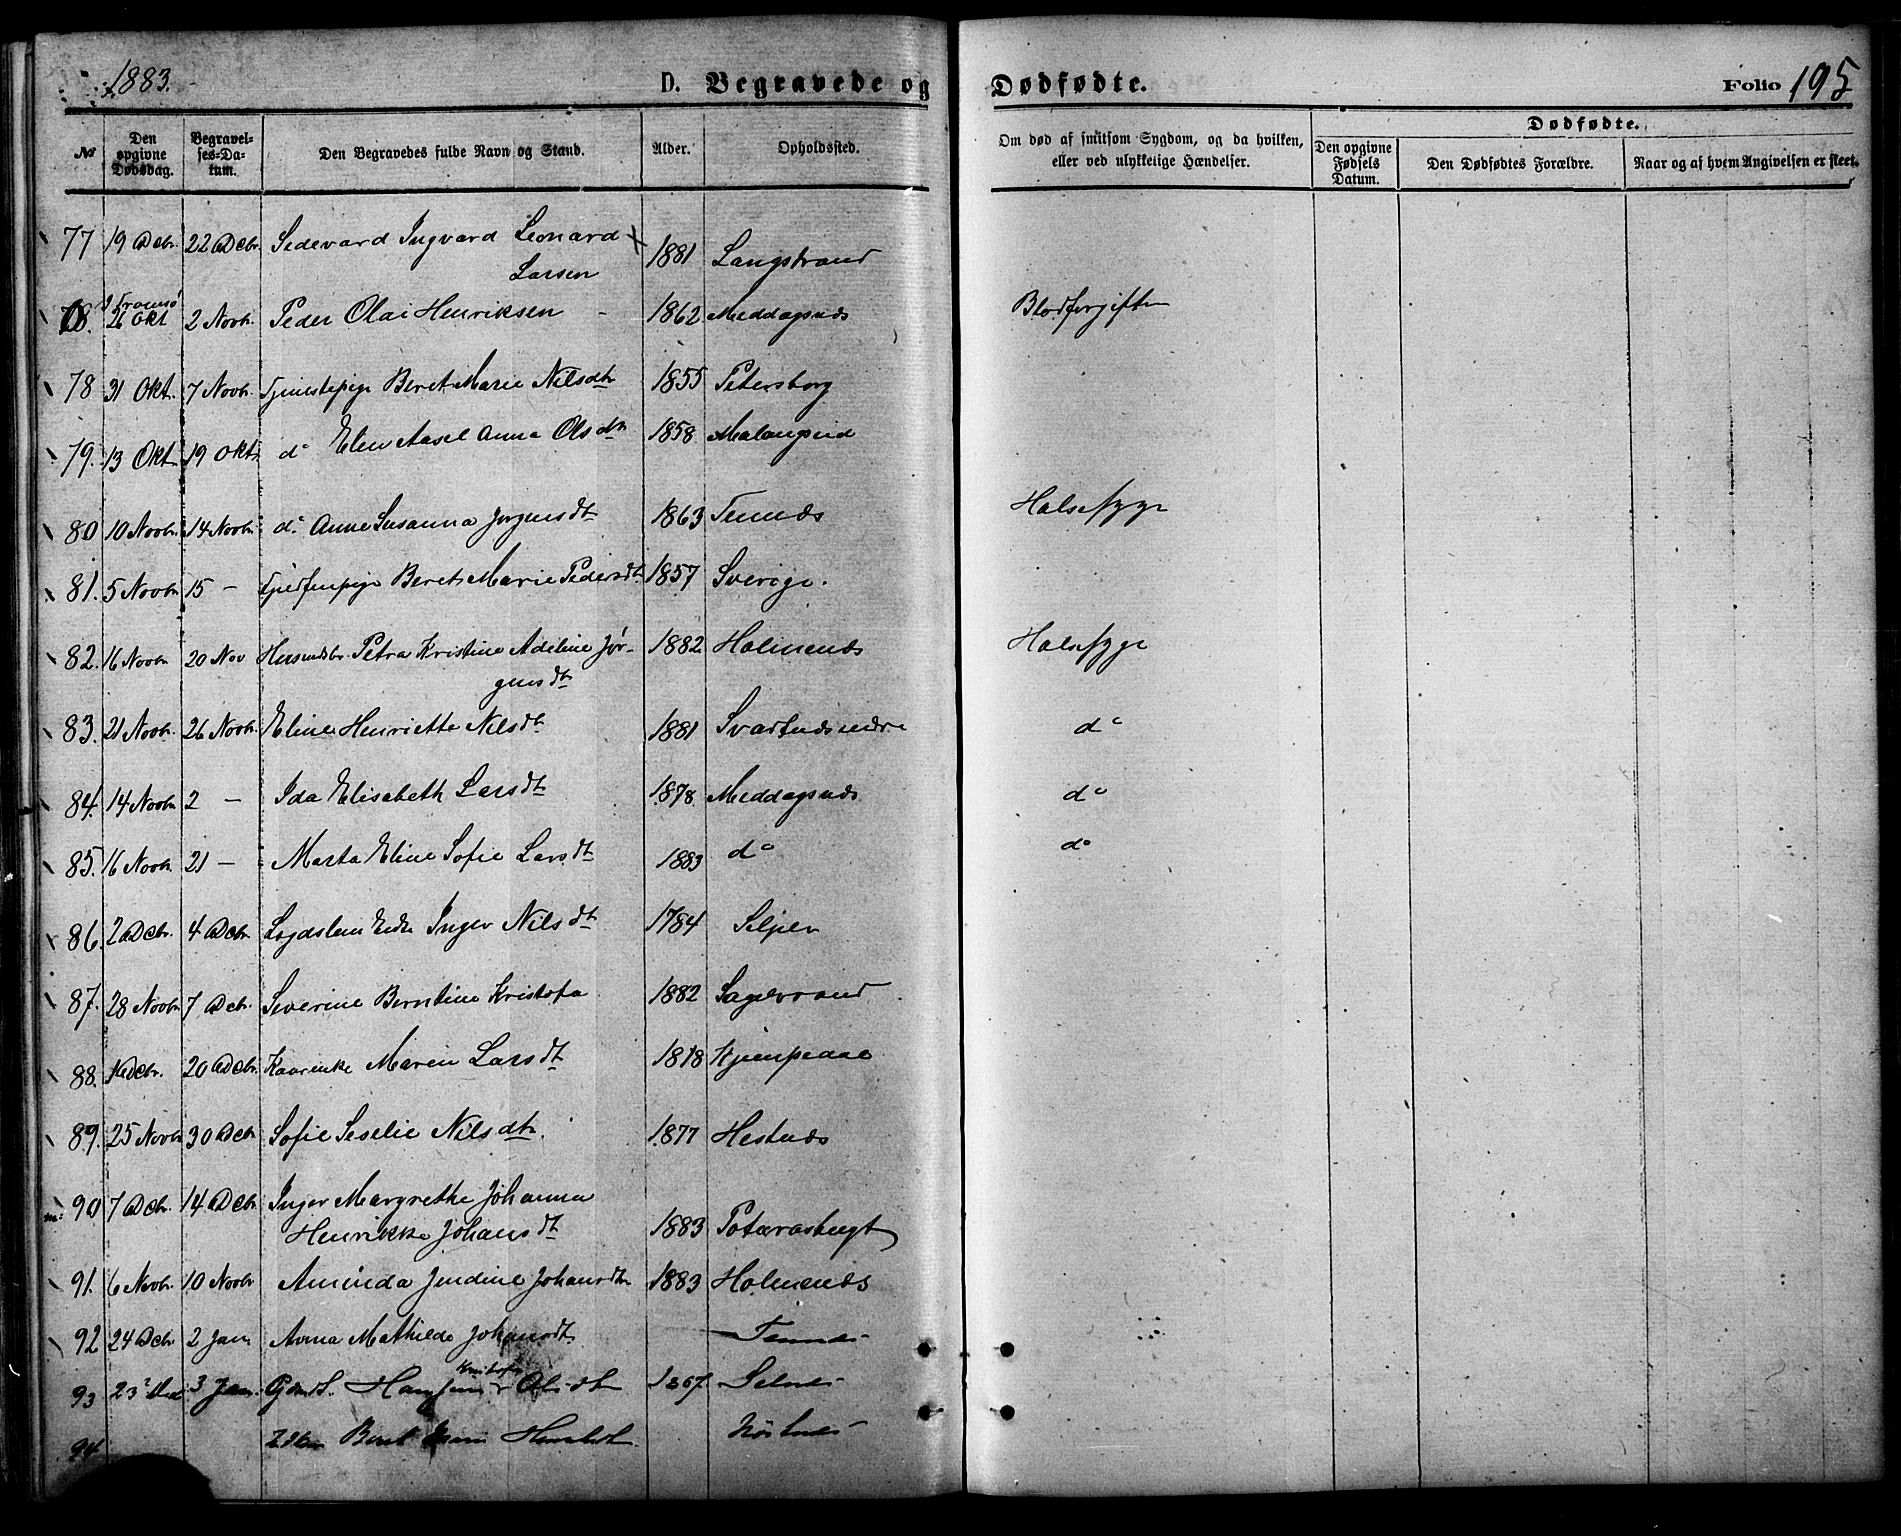 1883.
D. Begravede og Dødfødte.
Folio 195
№
Den opgivne Dødsdag.
Begravelses-Datum.
Den Begravedes fulde Navn og Stand.
Alder.
Opholdssted.
Om død af smitsom Sygdom, og da hvilken, eller ved ulykkelige Hændelser.
Dødfødte.
Den opgivne Fødsels Datum.
Den Dødfødtes Forældre.
Naar og af hvem Angivelsen er skeet.
77 19 Dcbr. 22 Dcbr. Sedevard Ingvard Leonard
Larsen 1881 Langstrand
Tromsø
78. 26 Okt 2 Novbr. Peder Olai Henriksen 1862 Meddagsnæs Blodforgiften
78 31 Okt. 7 Novbr. Tjenestepige Beret Marie Nilsdtr 1855 Petersborg
79. 13 Okt. 19 Okt. do Elen Aasel Anna Olsdtr 1858 Malangseid
80 10 Novbr. 14 Novbr. do Anne Susanna Jørgensdtr 1863 Tennæs Halssyge
81. 5 Novbr. 15 – Beret Marie Pedersdtr 1857 Sverige.
82. 16 Novbr 20 Nov Petra Kristine Adeline Jør-
gensdtr 1882 Holmenæs Halssyge
83. 21 Novbr. 26 Novbr. Eline Henriette Nilsdtr 1881 do
84. 14 Novbr 2 – Ida Elisabeth Larsdtr 1878 Meddagsnæs do
85. 16 Novbr. 21 – Marta Eline Sofie Larsdtr 1883 do do
86. 2 Dcbr. 4 Dcbr. Enke Inger Nilsdtr 1784
87. 28 Novbr 7 Dcbr. Severine Berntine Kristofa 1882
88. Dcbr. 20 Dcbr. Maren Larsdtr
89. 25 Novbr 30 Dcbr Sofie Seselie Nilsdtr. 1877 Hestnæs
90 7 Dcbr. 14 Dcbr Inger Margrethe Johanna
Henrikke Johansdtr 1883
91. 6 Novbr. 10 Novbr Aminda Jendine Johansdtr 1883 Holmenæs
92 24 Dcbr. 2 Jan. Anna Mathilde Johansdtr Tennes
93 3 Jan. Selnes
94 Beret